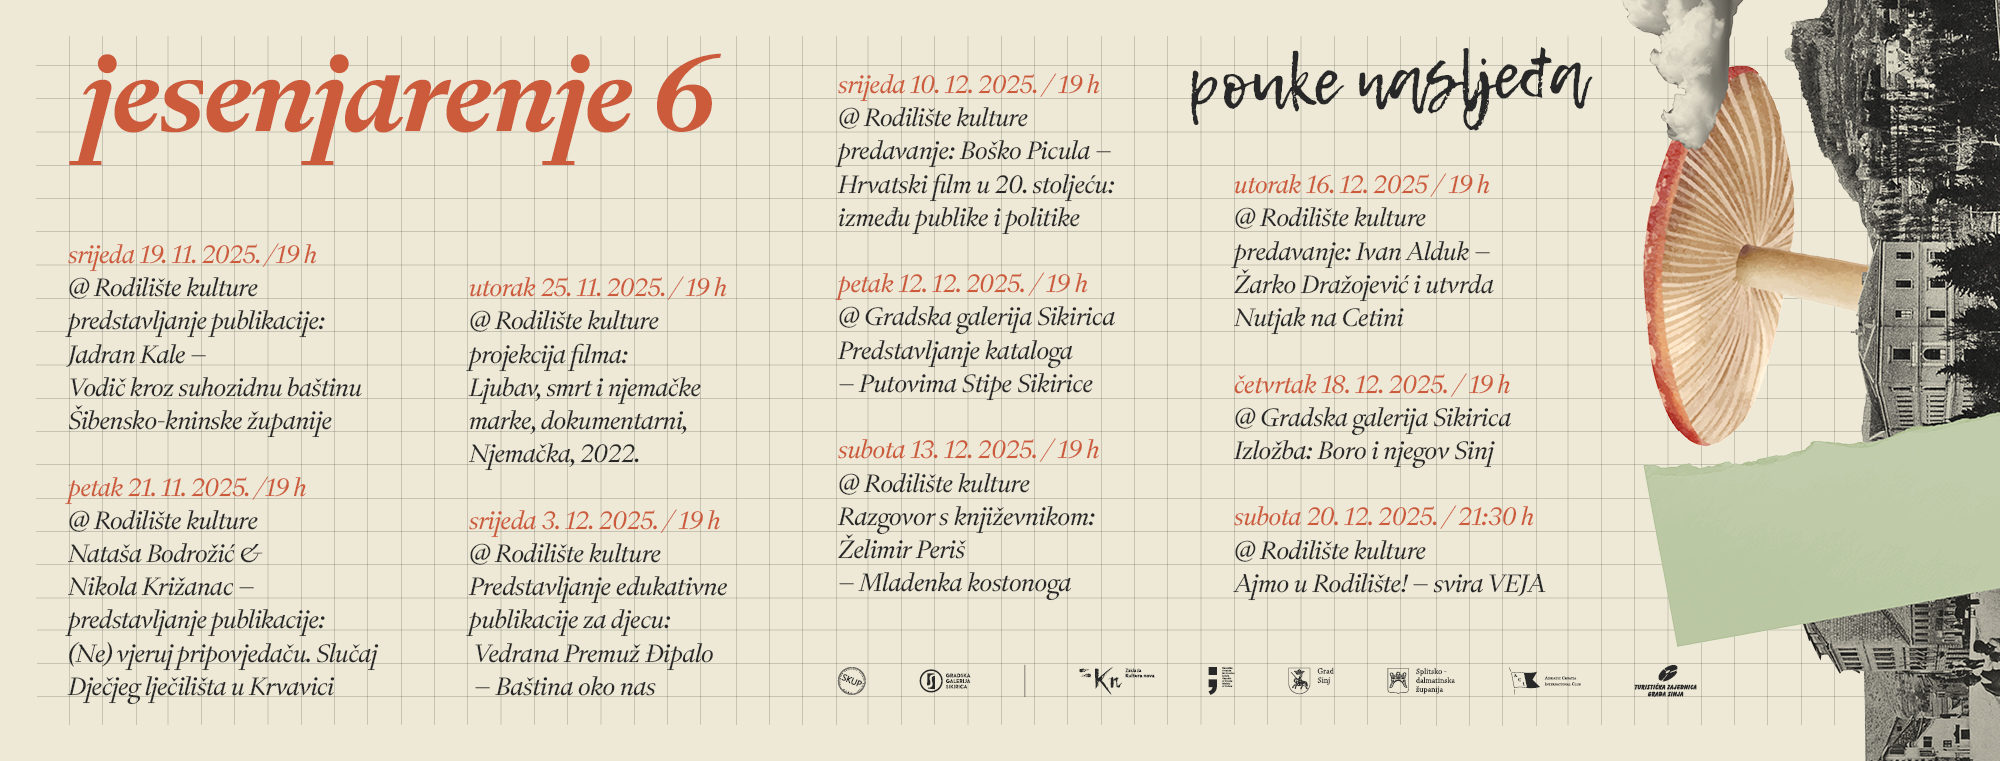 jesenjarenje 6
srijeda 19. 11. 2025. /19 h
@ Rodilište kulture
predstavljanje publikacije:
Jadran Kale –
Vodič kroz suhozidnu baštinu
Šibensko-kninske županije
petak 21. 11. 2025. /19 h
@ Rodilište kulture
Nataša Bodrožić &
Nikola Križanac –
predstavljanje publikacije:
(Ne) vjeruj pripovjedaču. Slučaj
Dječjeg lječilišta u Krvavici
utorak 25. 11. 2025. / 19 h
@ Rodilište kulture
projekcija filma:
Ljubav, smrt i njemačke
marke, dokumentarni,
Njemačka, 2022.
srijeda 3. 12. 2025. / 19 h
@ Rodilište kulture
Predstavljanje edukativne
publikacije za djecu:
Vedrana Premuž Đipalo
– Baština oko nas
srijeda 10. 12. 2025. / 19 h
@ Rodilište kulture
predavanje: Boško Picula –
Hrvatski film u 20. stoljeću:
između publike i politike
petak 12. 12. 2025. / 19 h
@ Gradska galerija Sikirica
Predstavljanje kataloga
– Putovima Stipe Sikirice
subota 13. 12. 2025. / 19 h
@ Rodilište kulture
Razgovor s književnikom:
Želimir Periš
– Mladenka kostonoga
pouke nasljeđa
utorak 16. 12. 2025 / 19 h
@ Rodilište kulture
predavanje: Ivan Alduk –
Žarko Dražojević i utvrda
Nutjak na Cetini
četvrtak 18. 12. 2025. / 19 h
@ Gradska galerija Sikirica
Izložba: Boro i njegov Sinj
subota 20. 12. 2025. / 21:30 h
@ Rodilište kulture
Ajmo u Rodilište! – svira VEJA
SKUP
GRADSKA
GALERIJA
SIKIRICA
Kn
Zaklada
Kultura nova
Grad
Sinj
Splitsko -
dalmatinska
županija
ACI
Adriatic Croatia
International Club
TURISTIČKA ZAJEDNICA
GRADA SINJA